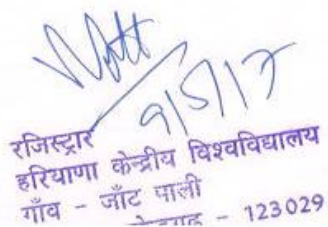 9/5/17
रजिस्ट्रार
हरियाणा केन्द्रीय विश्वविद्यालय
गाँव - जाँट पाली
- 123029